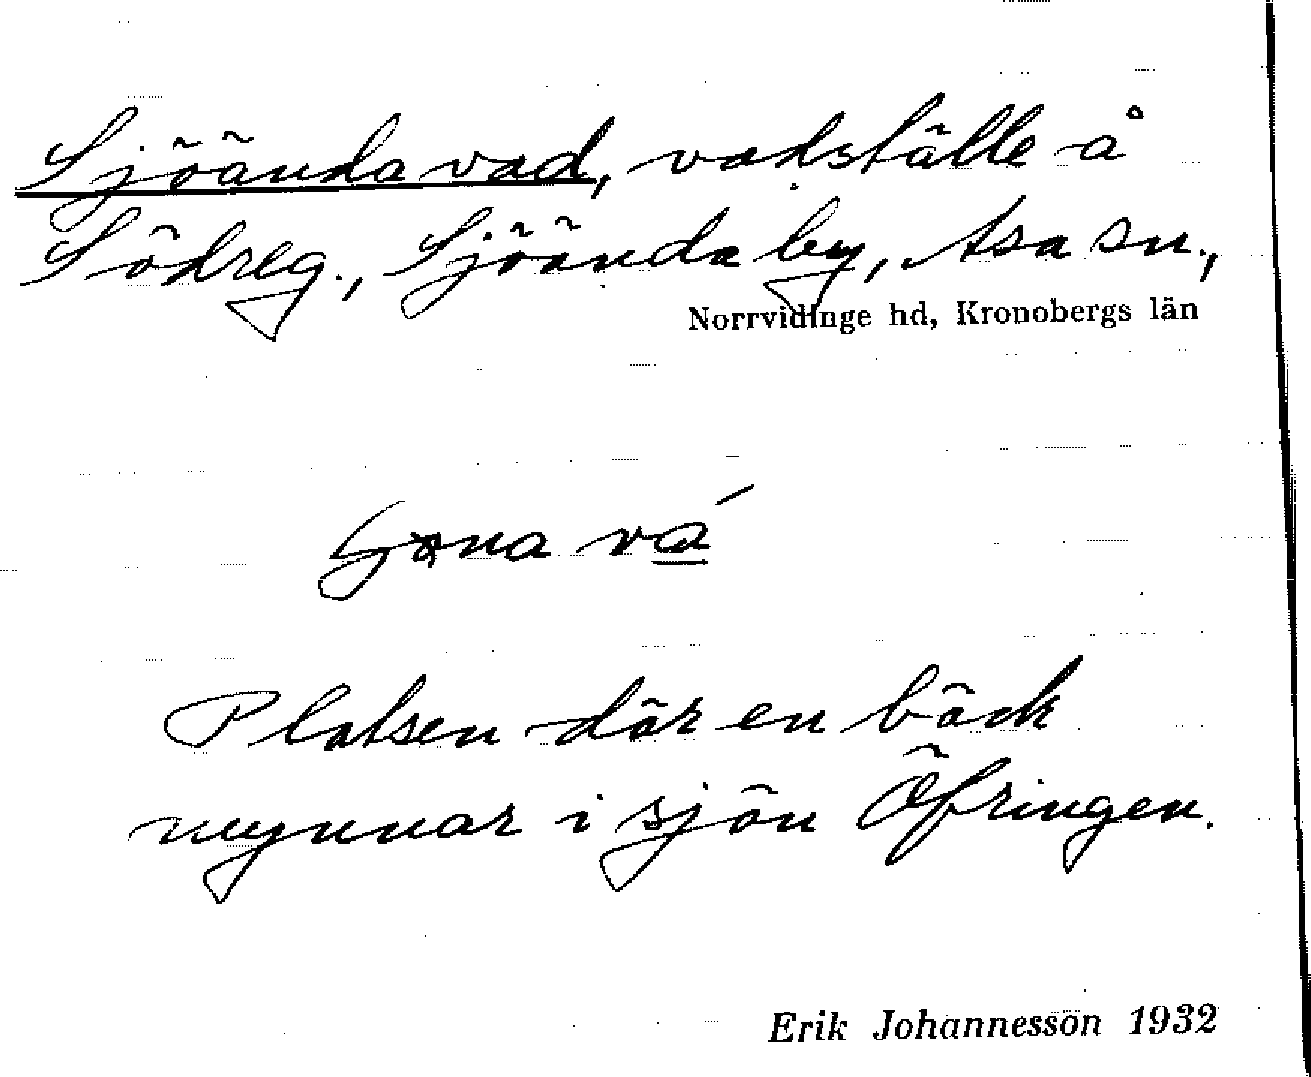 Sjöända vad, vadställe å
Södreg., Sjöända by, Asa sn.,
Norrvidinge hd, Kronobergs län
vá
Platsen där en bäck
mynnar i sjön Öfringen.
Erik Johannesson 1932